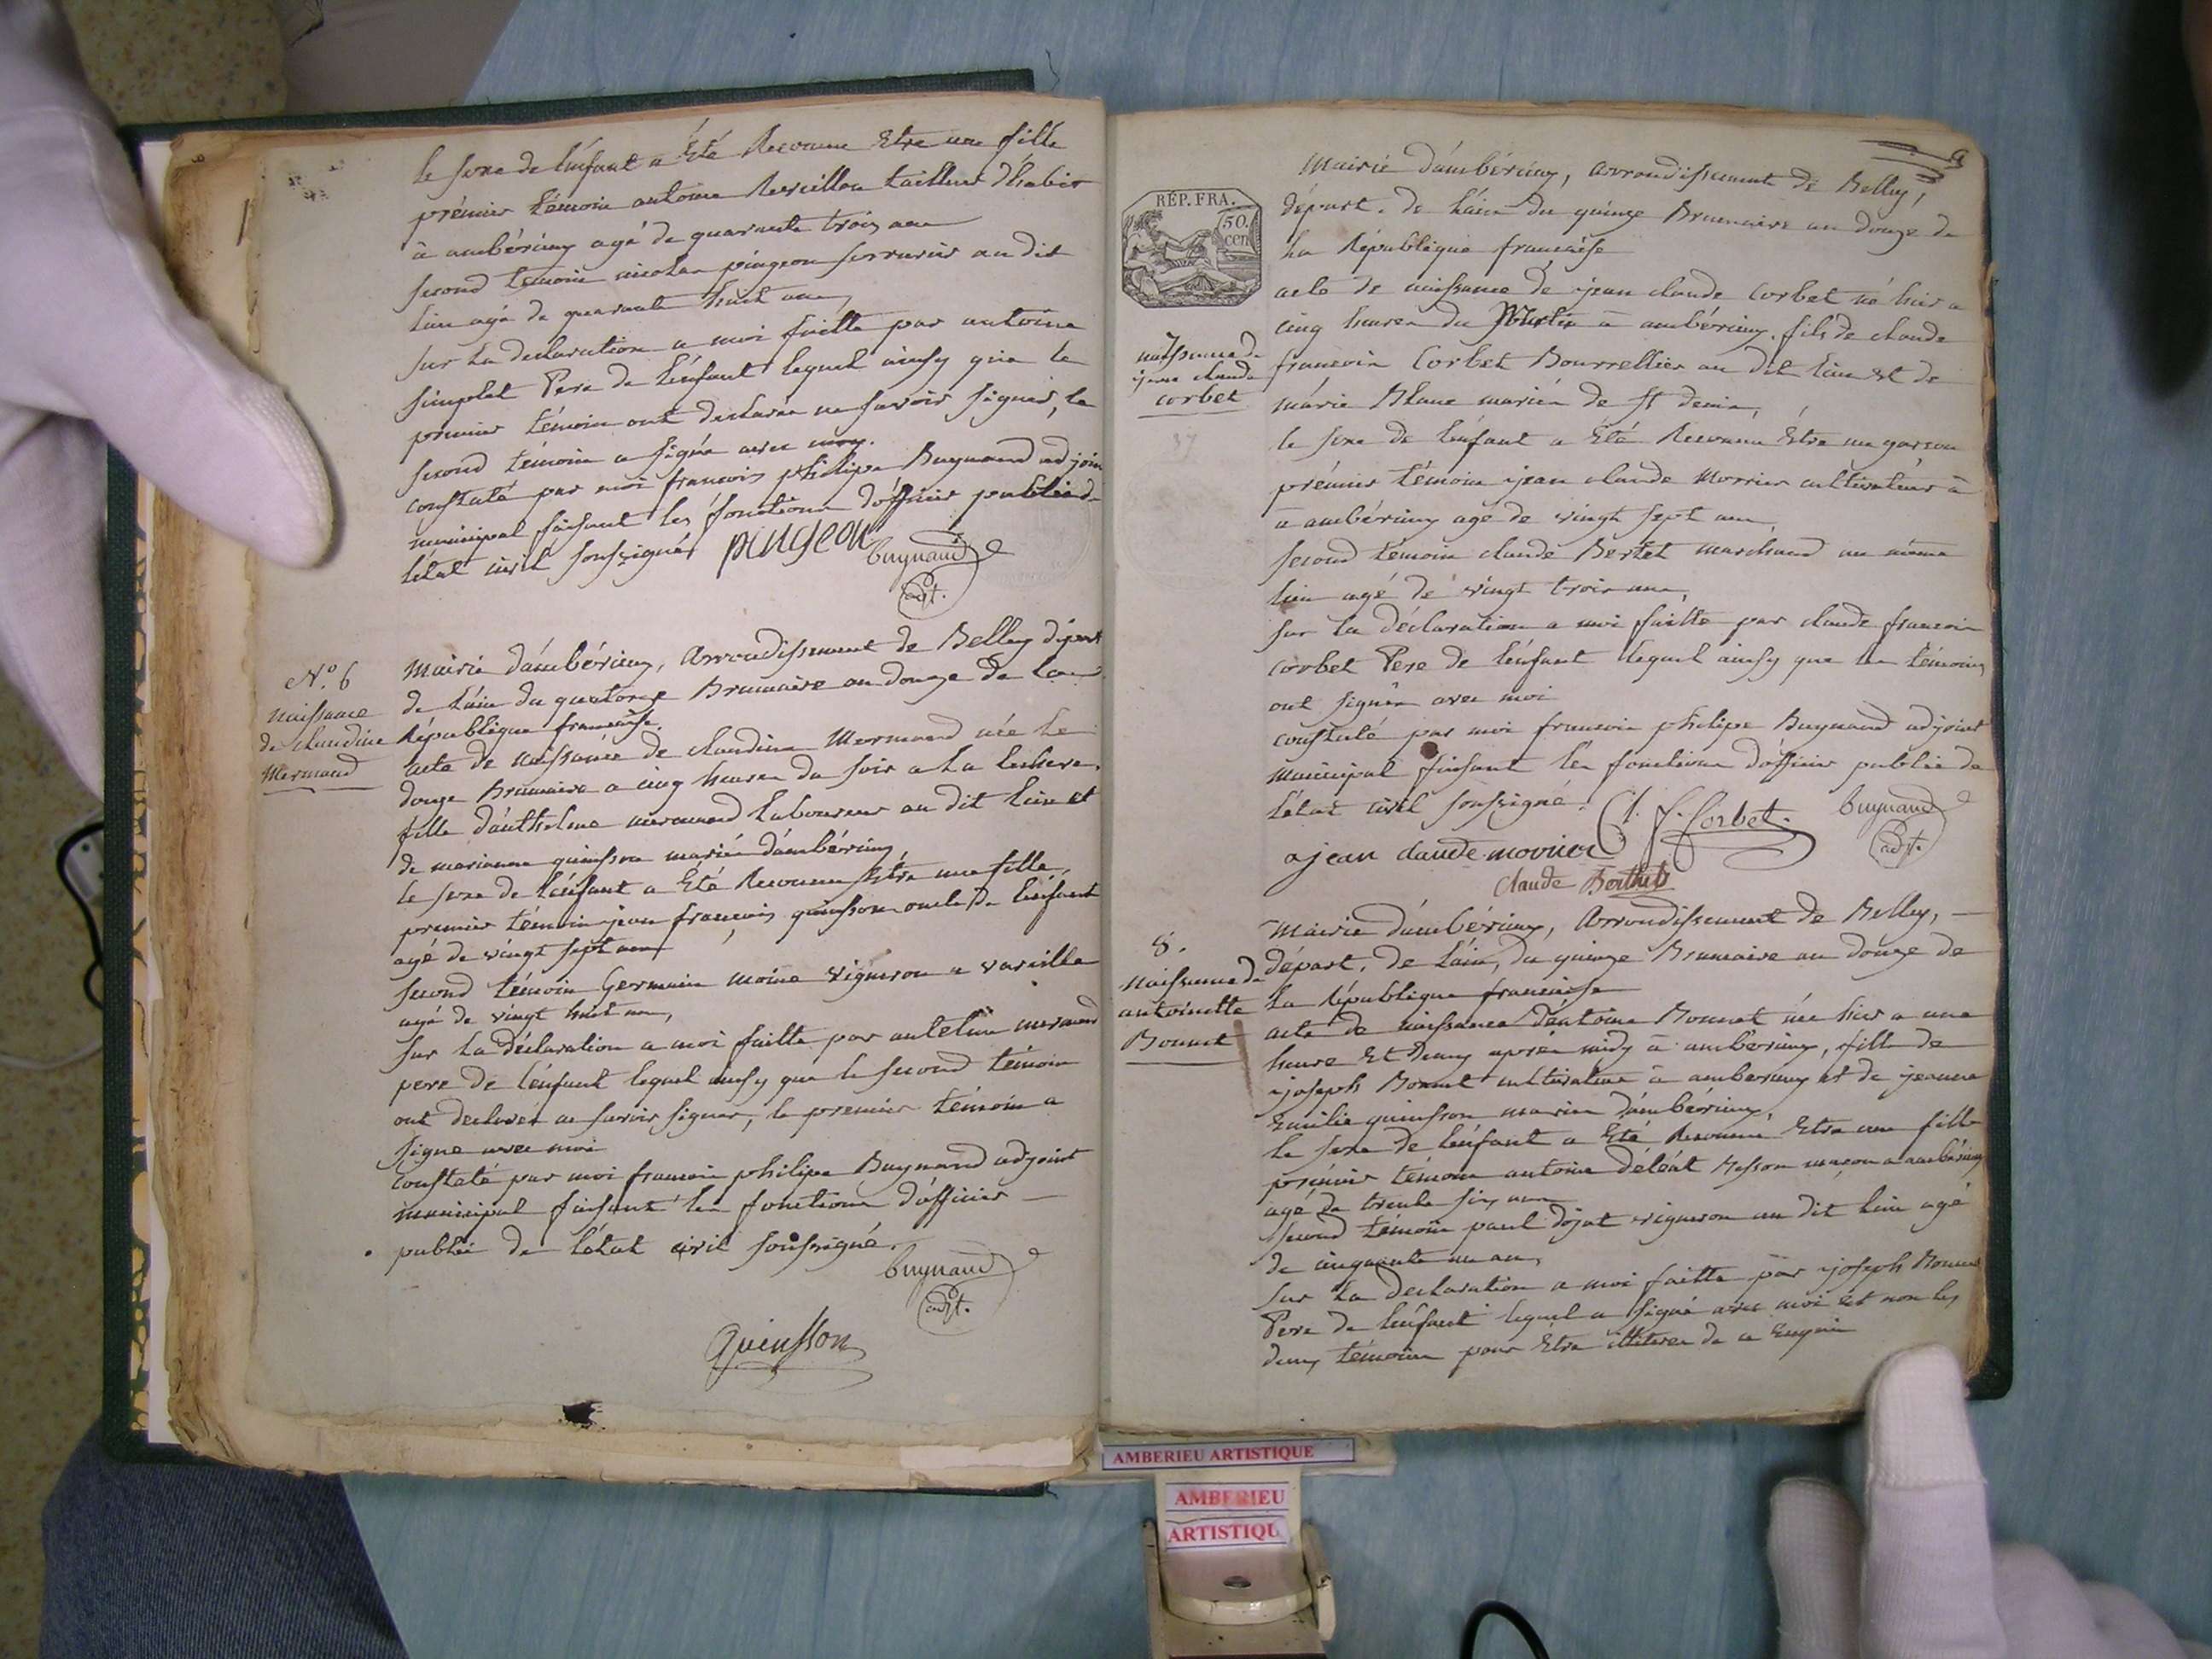 le sexe de l'enfant a Eté Reconnu Etre une fille
prémier témoin antoine Reveillon tailleur d'habit
à ambérieux agé de quarante trois ans
second temoin nicolas pingeon serrurier au dit
lieu agé de quarante huit ans,
sur la declaration a moi faitte par antoine
simplet Pere de l'énfant lequel ainsy que le
premier témoin ont declarés ne savoir signer, le
second témoin a signé avec moy.
constaté par moi francois philipe Buynand adjoin
municipal faisant les fonctions d'officier public de
létat civil soussigné
pingeon
buynand
adjt.
N.° 6
Naissance
de claudine
Mermand
Mairie d'ambérieux, Arrondissement de Belley départ
de l'ain du quatorze Brumaire an douze de la
République francaise.
acte de naissance de claudine Mermand née le
douze Brumaire a cinq heures du soir a la lechere.
fille d'anthelme mermand laboureur au dit lieu et
de marianne quinson mariés d'ambérieux,
le sexe de l'énfant a Eté Reconnu Etre une fille,
premier témoin jean francois quinsson oncle de l'énfant
agé de vingt sept ans
second témoin Germain moine vigneron a vareille
agé de vingt huit ans,
sur la déclaration a moi faitte par antelme mermand
pere de l'énfant lequel ainsy que le second témoin
ont declarés ne savoir signer, le premier témoin a
signe avec moi
constaté par moi francois philipe Buynand adjoint
municipal faisant les fonctions d'officier
public de l'état civil soussigné.
buynand
adjt.
Quinsson
9
Mairie d'ambérieux, arrondissement de Belley,
départ. de l'ain du quinze Brumaire an douze de
la République francaise
RÉP. FRA.
50.
cen
7
naissance de
jean claude
corbet
37
acte de naissance de jean claude Corbet né hier a
cinq heures du Matin a ambérieux, fils de claude
francois Corbet Bourrellier au dit lieu et de
márie Blanc mariés de St denis,
le sexe de l'énfant a Eté Reconnu Etre un garson
prémier témoin jean claude Morrier cultivateur à
a ambérieux agé de vingt sept ans,
second témoin claude Bertet marchand au même
lieu agé de vingt trois ans,
sur la déclaration a moi faitte par claude francois
corbet Pere de l'énfant lequel ainsy que les témoins
ont signés avec moi
constaté par moi francois philipe Buynand adjoint
municipal faisant les fonctions d'officier public de
l'état civil soussigné.
C. f. Corbet.
buynand
adjt.
jean claude morrier
Claude Berthet
8.
Naissance de
antoinette
Bonnet
Mairie d'ambérieux, Arrondissement de Belley,
départ. de l'ain, du quinze Brumaire an douze de
la République francaise
acte de naissance d'antoine Bonnet née hier a une
heure et demy aprés midy à ambérieux, fille de
joseph Bonnet cultivateur à amberieux et de jeanne
Emilie quinsson mariés d'ambérieux,
le sexe de l'énfant a Eté Reconnu Etre une fille
prémier témoin antoine déléat Besson maçon a ambérieux
agé de trente six ans
second témoin paul dojat vigneron au dit lieu agé
de cinquante un an,
sur la declaration a moi faitte par joseph Bonnet
Pere de l'énfant lequel a signé avec moi et non les
deux témoins pour Etre illitteré de ce Enquis
AMBERIEU ARTISTIQUE
AMBERIEU
ARTISTIQU